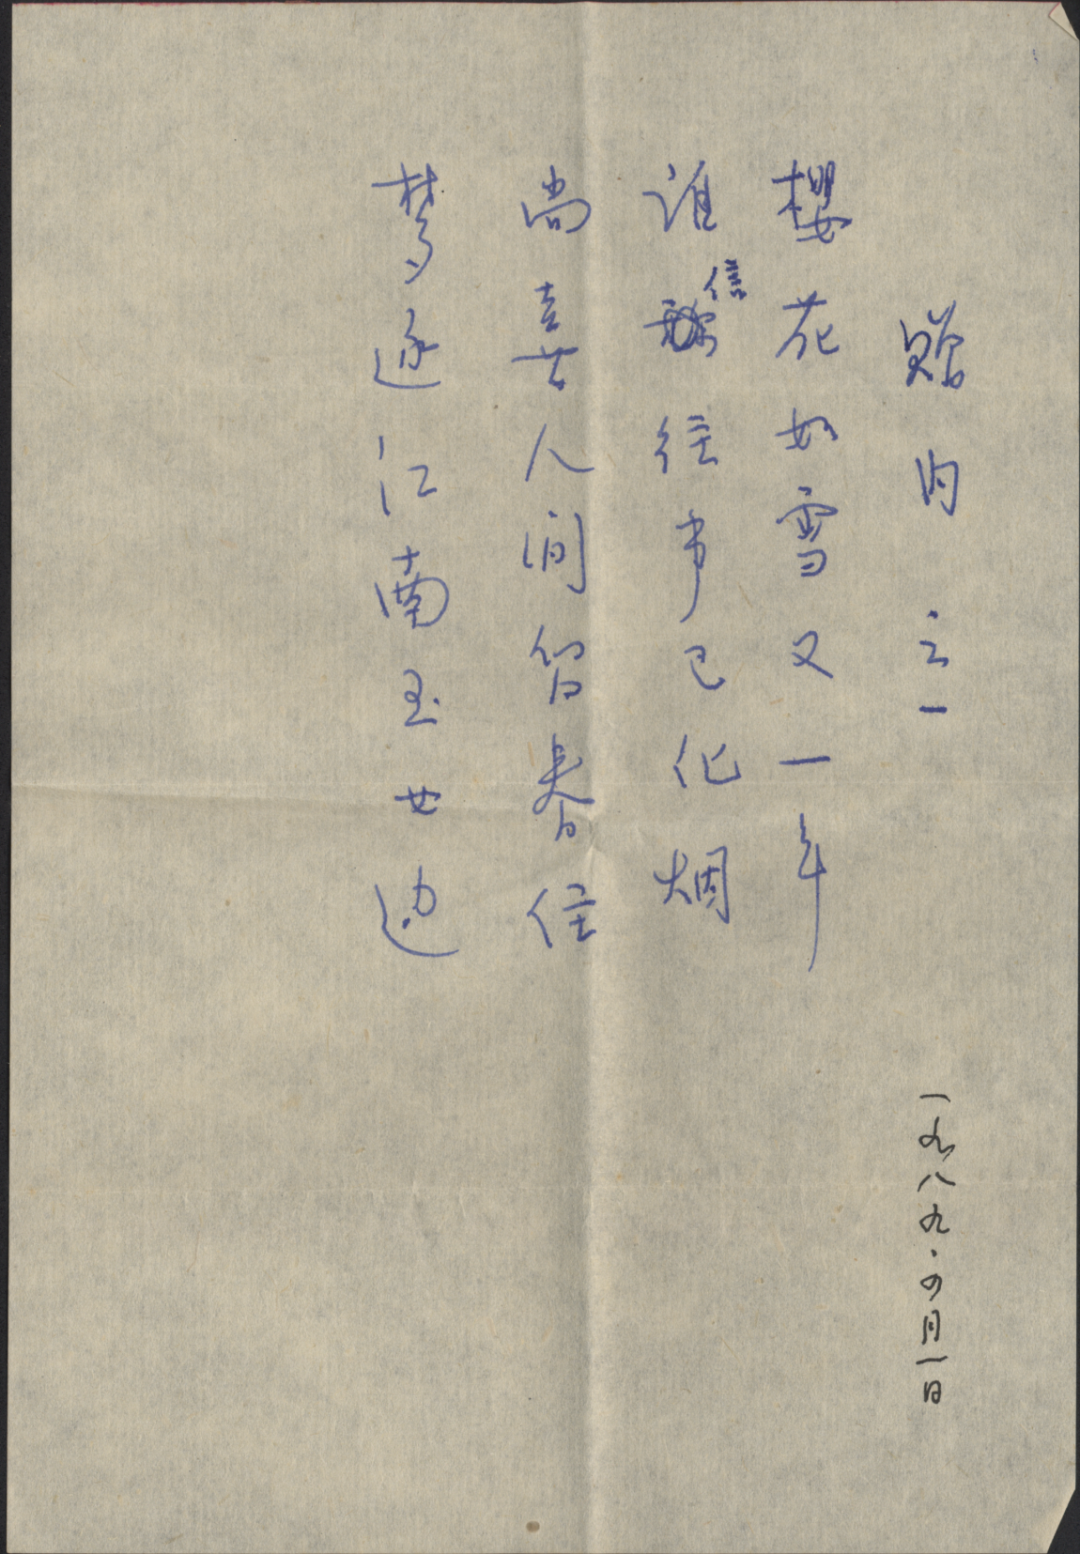 赠内 之一
樱花如雪又一年
谁信往事已化烟
尚喜人间留春住
梦逐江南玉女边
一九八九·四月一日